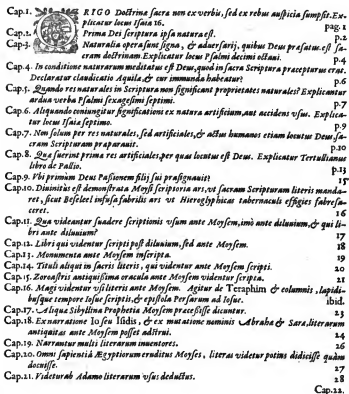 Cap.1. ORIGO Doctrina sacra non ex verbis, sed ex rebus auspicia sumpsit. Ex-
plicatur locus Isaiæ 16. pag. 1
Cap.2. Prima Dei scriptura ipsa natura est. p.2
Cap.3. Naturalia opera sunt signa, & adversarij, quibus Deus præfatus est sa-
cram doctrinam. Explicatur locus Psalmi decimi octavi. p.4
Cap.4. In conditione naturarum meditatus est Deus, quod in sacra Scriptura præcepturus erat.
Declaratur claudicatio Aquilæ, & cur immunda habeatur? p.6
Cap.5. Quando res naturales in Scriptura non significant proprietates naturales? Explicantur
ardua verba Psalmi sexagesimi septimi. p.7
Cap.6. Aliquando coniungitur significationes ex natura artificium, aut accidens usus. Explica-
tur locus Isaiæ septimo. p.9
Cap.7. Non solum per res naturales, sed artificiales, & actus humanos etiam locutus Deus sa-
cram Scripturam præparavit. p.10
Cap.8. Quæ fuerint prima res artificiales, per quas locutus est Deus. Explicatur Tertullianus
libro de Pallio. p.13
Cap.9. Ubi primùm Deus Passionem filij sui præsignavit? 15
Cap.10. Divinitùs est demonstrata Moysi scriptoria ars, ut sacram Scripturam literis manda-
ret, sicut Beseleel infusa fabrilis ars ut Hieroglyphicas tabernaculi effigies fabresa-
ceret. 16
Cap.11. Quæ videantur suadere scriptionis usum ante Moysem, imò ante diluvium, & qui li-
bri ante diluvium? 17
Cap.12. Libri qui videntur scripti post diluvium, sed ante Moysem. 18
Cap.13. Monumenta ante Moysem inscripta. 19
Cap.14. Tituli aliqui in sacris literis, qui videntur ante Moysem scripti. 20
Cap.15. Zoroastris antiquissima oracula ante Moysem videntur scripta. 21
Cap.16. Magi videntur usi literis ante Moysem. Agitur de Teraphim & columnis, lapidi-
busque tempore Iosue scriptis, & epistola Persarum ad Iosue. ibid.
Cap.17. Aliqua Sibyllina Prophetia Moysem præcessisse dicuntur. 23
Cap.18. Ex narratione Io seu Isidis, & ex mutatione nominis Abrahæ & Saræ, literarum
antiquitas ante Moysem posset adstrui. 24
Cap.19. Narrantur multi literarum inventores. 26
Cap.20. Omni sapientiâ Ægyptiorum eruditus Moyses, literas videtur potius didicisse quàm
docuisse. 27
Cap.21. Videtur ab Adamo literarum usus deductus. 28
Cap.22.